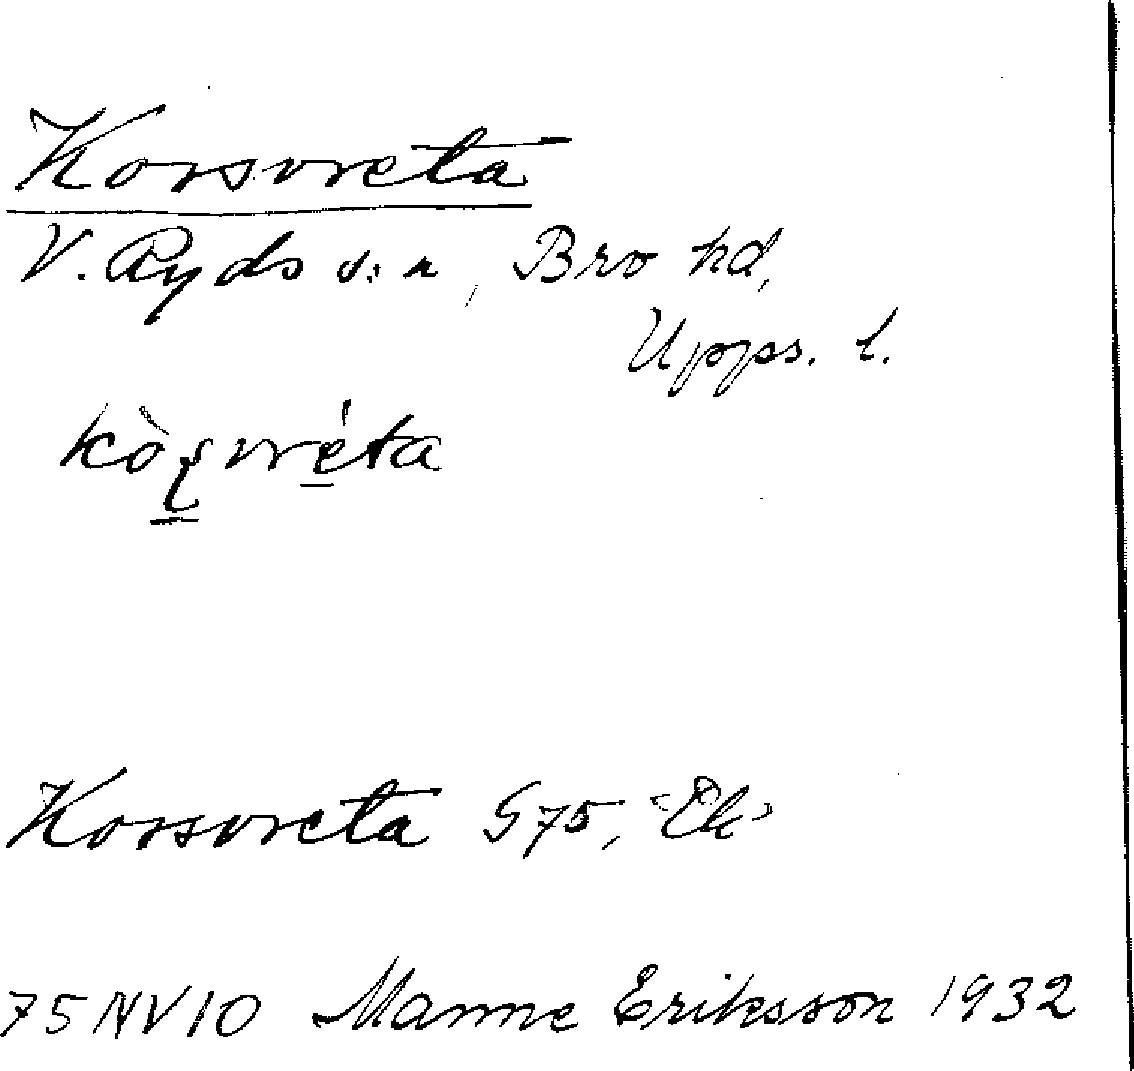 Korsvreta
V. Ryds s:n, Bro hd,
Upps. l.
Korsvreta G75, Ek
75 NV 10 Manne Eriksson 1932